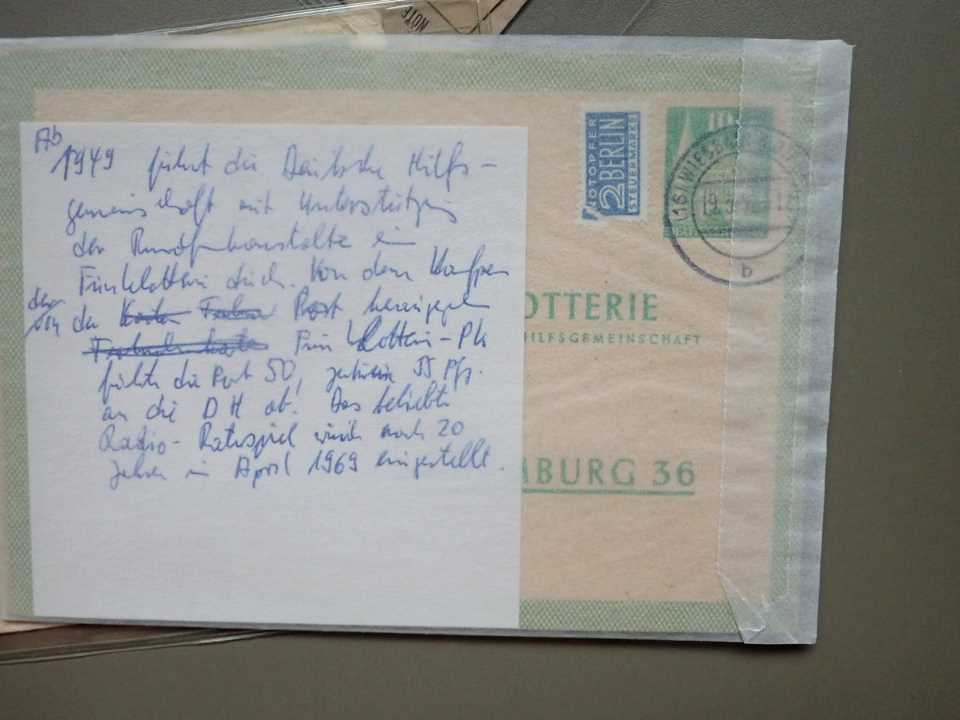 NOTF
Ab
1949 führt die Deutsche Hilfs-
gemeinschaft mit Unterstützung
der Rundfunkanstalten ein
Funklotterie durch. Von dem
von der Post herausgegeben
Funk Lotterie-PK
führte die Post 50, 55 Pfg.
an die DH ab. Das beliebte
Radio-Ratespiel wurde nach 20
Jahren im April 1969 eingestellt.
NOTOPFER
2 BERLIN
STEUERMARKE
(16) WIESB
b
OTTERIE
HILFSGEMEINSCHAFT
MBURG 36